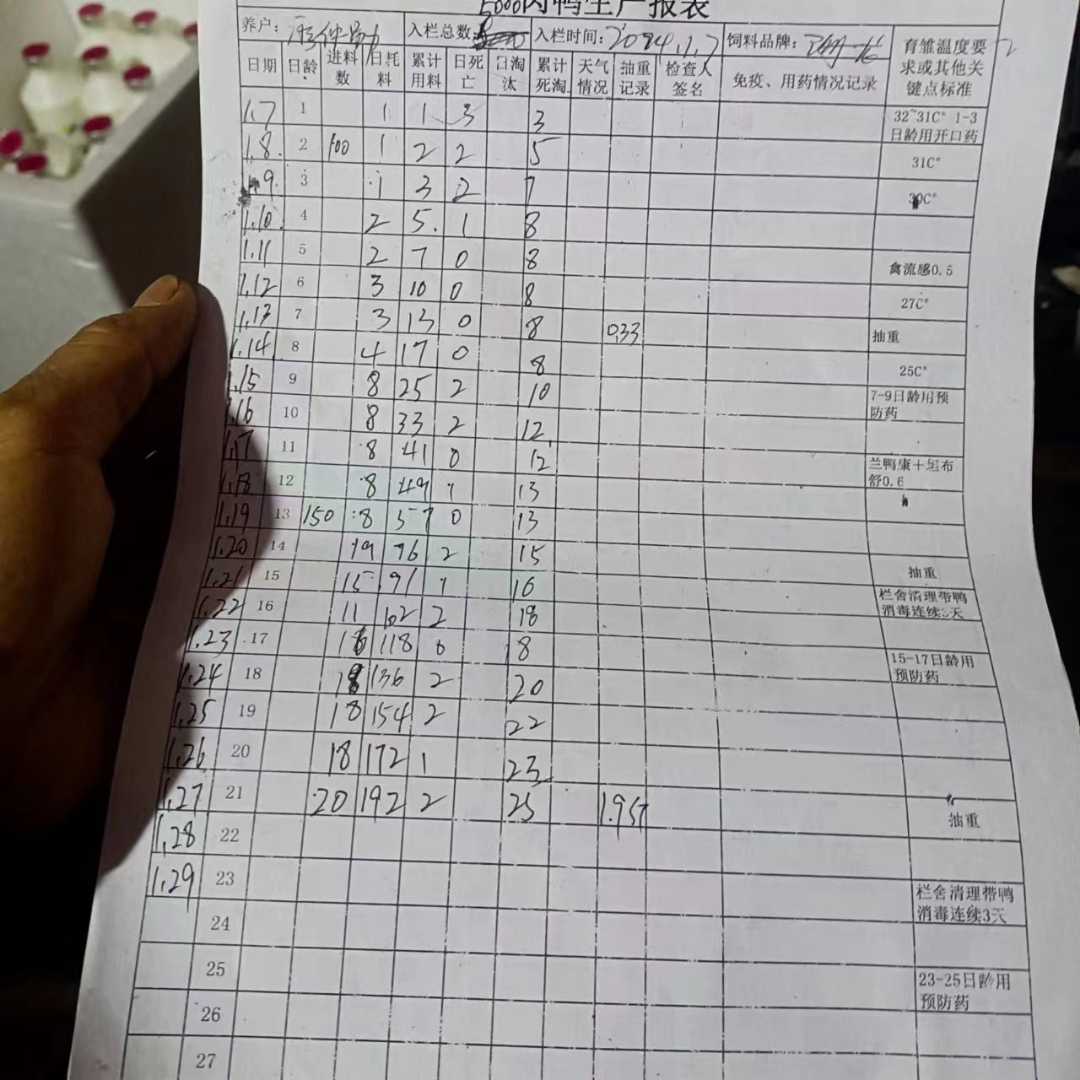 5000肉鸭生产报表
养户： 入栏总数： 入栏时间：2024.1.7 饲料品牌：
日期 日龄 进料数 日耗料 累计用料 日死亡 日淘汰 累计死淘 天气情况 抽重记录 检查人签名 免疫、用药情况记录 育雏温度要求或其他关键点标准
1.7 1 1 1 3 3 32~31C° 1-3日龄用开口药
1.8 2 100 1 2 2 5 31C°
1.9 3 1 3 2 7 30C°
1.10 4 2 5 1 8
1.11 5 2 7 0 8 禽流感0.5
1.12 6 3 10 0 8 27C°
1.13 7 3 13 0 8 0.33 抽重
1.14 8 4 17 0 8 25C°
1.15 9 8 25 2 10 7-9日龄用预防药
1.16 10 8 33 2 12
1.17 11 8 41 0 12 兰鸭康+
舒0.6
1.18 12 8 49 1 13
1.19 13 150 8 57 0 13
1.20 14 19 76 2 15
1.21 15 15 91 1 16 抽重
1.22 16 11 102 2 18 栏舍清理带鸭消毒连续3天
1.23 17 16 118 0 18
1.24 18 18 136 2 20 15-17日龄用预防药
1.25 19 18 154 2 22
1.26 20 18 172 1 23
1.27 21 20 192 2 25 1.95 抽重
1.28 22
1.29 23 栏舍清理带鸭消毒连续3天
24
25 23-25日龄用预防药
26
27